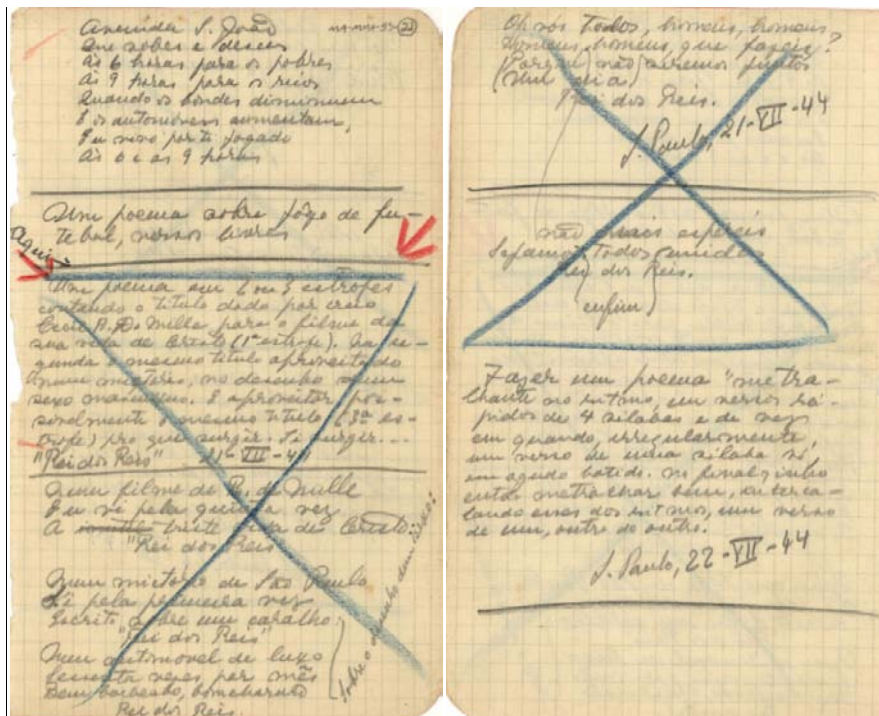 Avenida S. João
Que sobes e desces
Às 6 horas para os pobres
Às 9 horas para os ricos
Quando os bondes diminuem
E os automóveis aumentam,
Eu vivo por ti jogado
Às 6 e as 9 horas
Um poema sobre jôgo de fu-
tebol, versos livres
Aqui
Um poema em 2 ou 3 estrofes
contando o titulo dado por
Cecil B. De Mille para o filme da
sua vida de Cristo (1ª estrofe). Na se-
gunda o mesmo titulo aproveitado
num mictorio, no desenho dum
sexo masculino. E aproveitar pos-
sivelmente o mesmo titulo (3ª es-
trofe) pro que surgir. Si surgir...
"Rei dos Reis" 21-VII-44
Num filme de B. de Mille
Eu vi pela quinta vez
A triste vida de Cristo:
"Rei dos Reis"
Num mictorio de São Paulo
Li pela primeira vez
Escrito sobre um caralho:
"Rei dos Reis"
Num automovel de luxo
Sessenta vezes por mês
Bem barbeado, bom charuto
Rei dos Reis.
Sobre o desenho dum
Oh vós todos, homens, homens,
Homens, homens, que fazeis?
Porque não seremos juntos
(Um dia)
Rei dos Reis.
S. Paulo, 21-VII-44
não mais espereis
Sejamos todos unidos
Rei dos Reis.
enfim
Fazer um poema "metra-
lhante no ritmo, em versos rá-
pidos de 4 silabas e de vez
em quando, irregularmente,
um verso de uma silaba só,
em agudo batido. No finalzinho
então metralhar bem, interca-
lando esses dos ritmos, um verso
de um, outro do outro.
S. Paulo, 22-VII-44